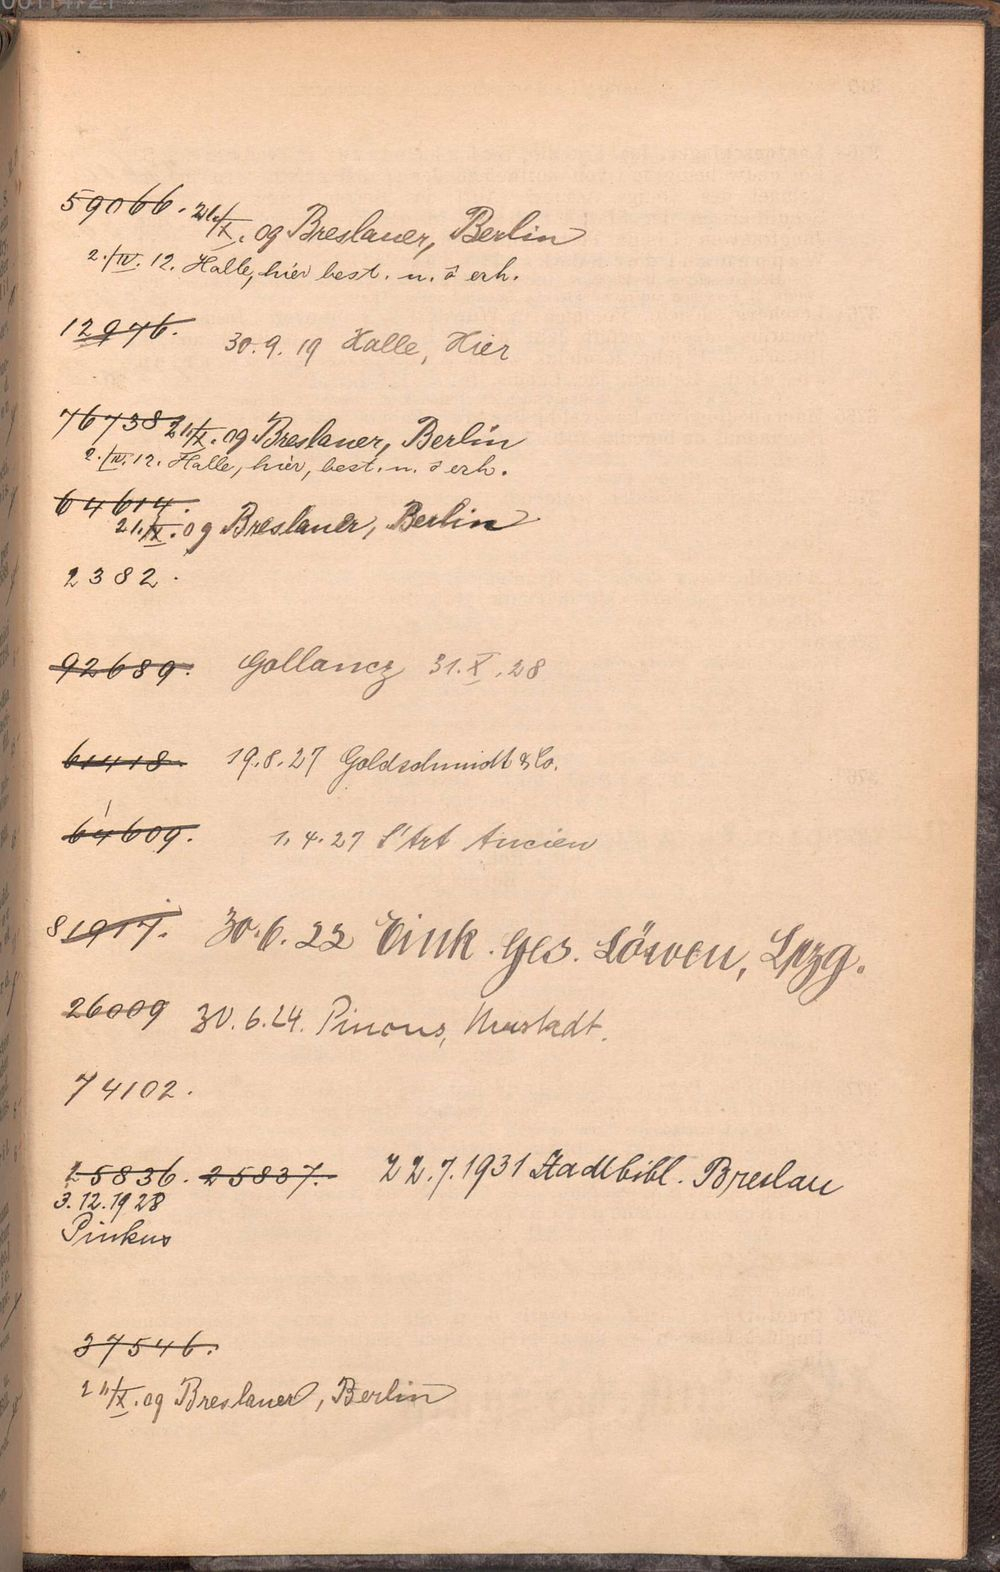 59066. 21./X. 09 Breslauer, Berlin
2./IV. 12. Halle, hier best. u. o erh.
12976. 30.9.19 Halle, Hier
76738 21/X. 09 Breslauer, Berlin
2./IV. 12. Halle, hier, best. u. o erh.
64614.
21./X. 09 Breslauer, Berlin
2382.
92689. Gollancz 31.X.28
61418. 19.8.27 Goldschmidt & Co.
64609. 1.4.27 L'Art Ancien
81917. 30.6.22 Eink. Ges. Löwen, Lpzg.
26009 30.6.24. Neustadt.
74102.
25836. 25837. 22.7.1931 Stadtbibl. Breslau
3.12.1928
Pinkus
37546.
21/X. 09 Breslauer, Berlin